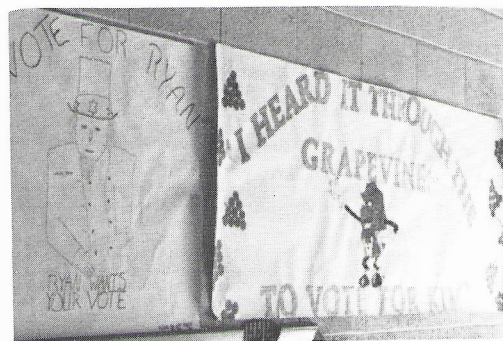 VOTE FOR RYAN
RYAN WANTS
YOUR VOTE
I HEARD IT THROUGH THE
GRAPEVINE
TO VOTE FOR KING